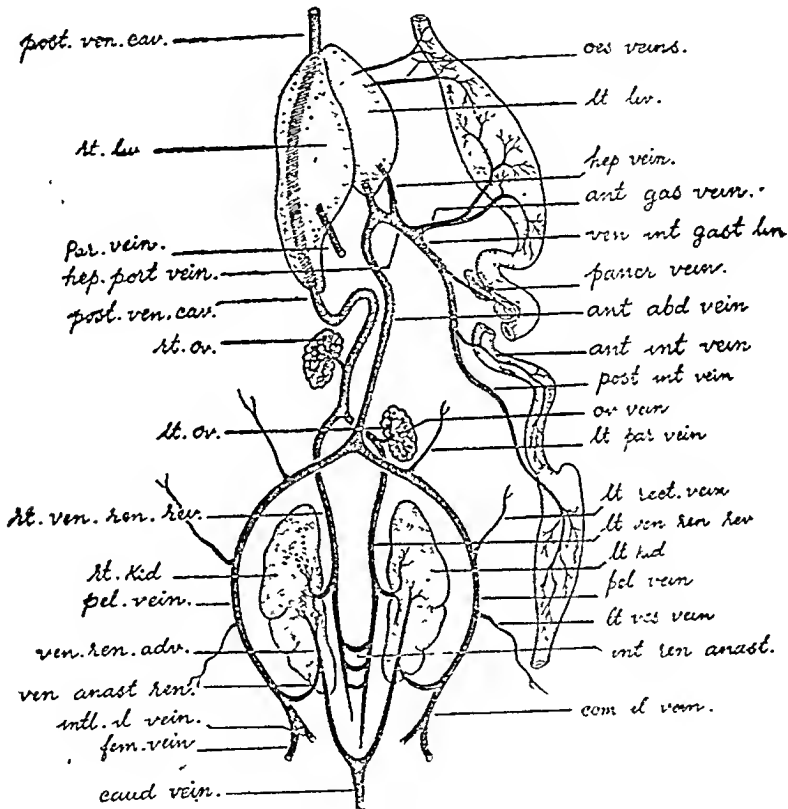 post. ven. cav.
rt. liv
Par. vein.
hep. port vein.
post. ven. cav.
rt. ov.
lt. ov.
rt. ven. ren. rev.
rt. Kid
pel. vein.
ven. ren. adv.
ven anast ren.
intl. il vein.
fem. vein
caud vein.
oes veins.
lt liv.
hep vein.
ant gas vein.
ven int gast lin
pancr vein.
ant abd vein
ant int vein
post int vein
ov vein
lt par vein
lt rect. vein
lt ven ren rev
lt kid
pel vein
lt ves vein
int ren anast.
com il vein.